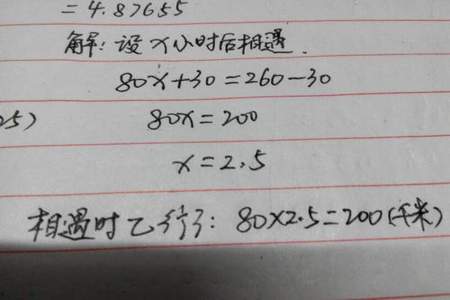 = 4.87655
解：设x小时后相遇.
80x+30=260-30
25) 80x=200
x=2.5
相遇时乙行了：80×2.5=200(千米)